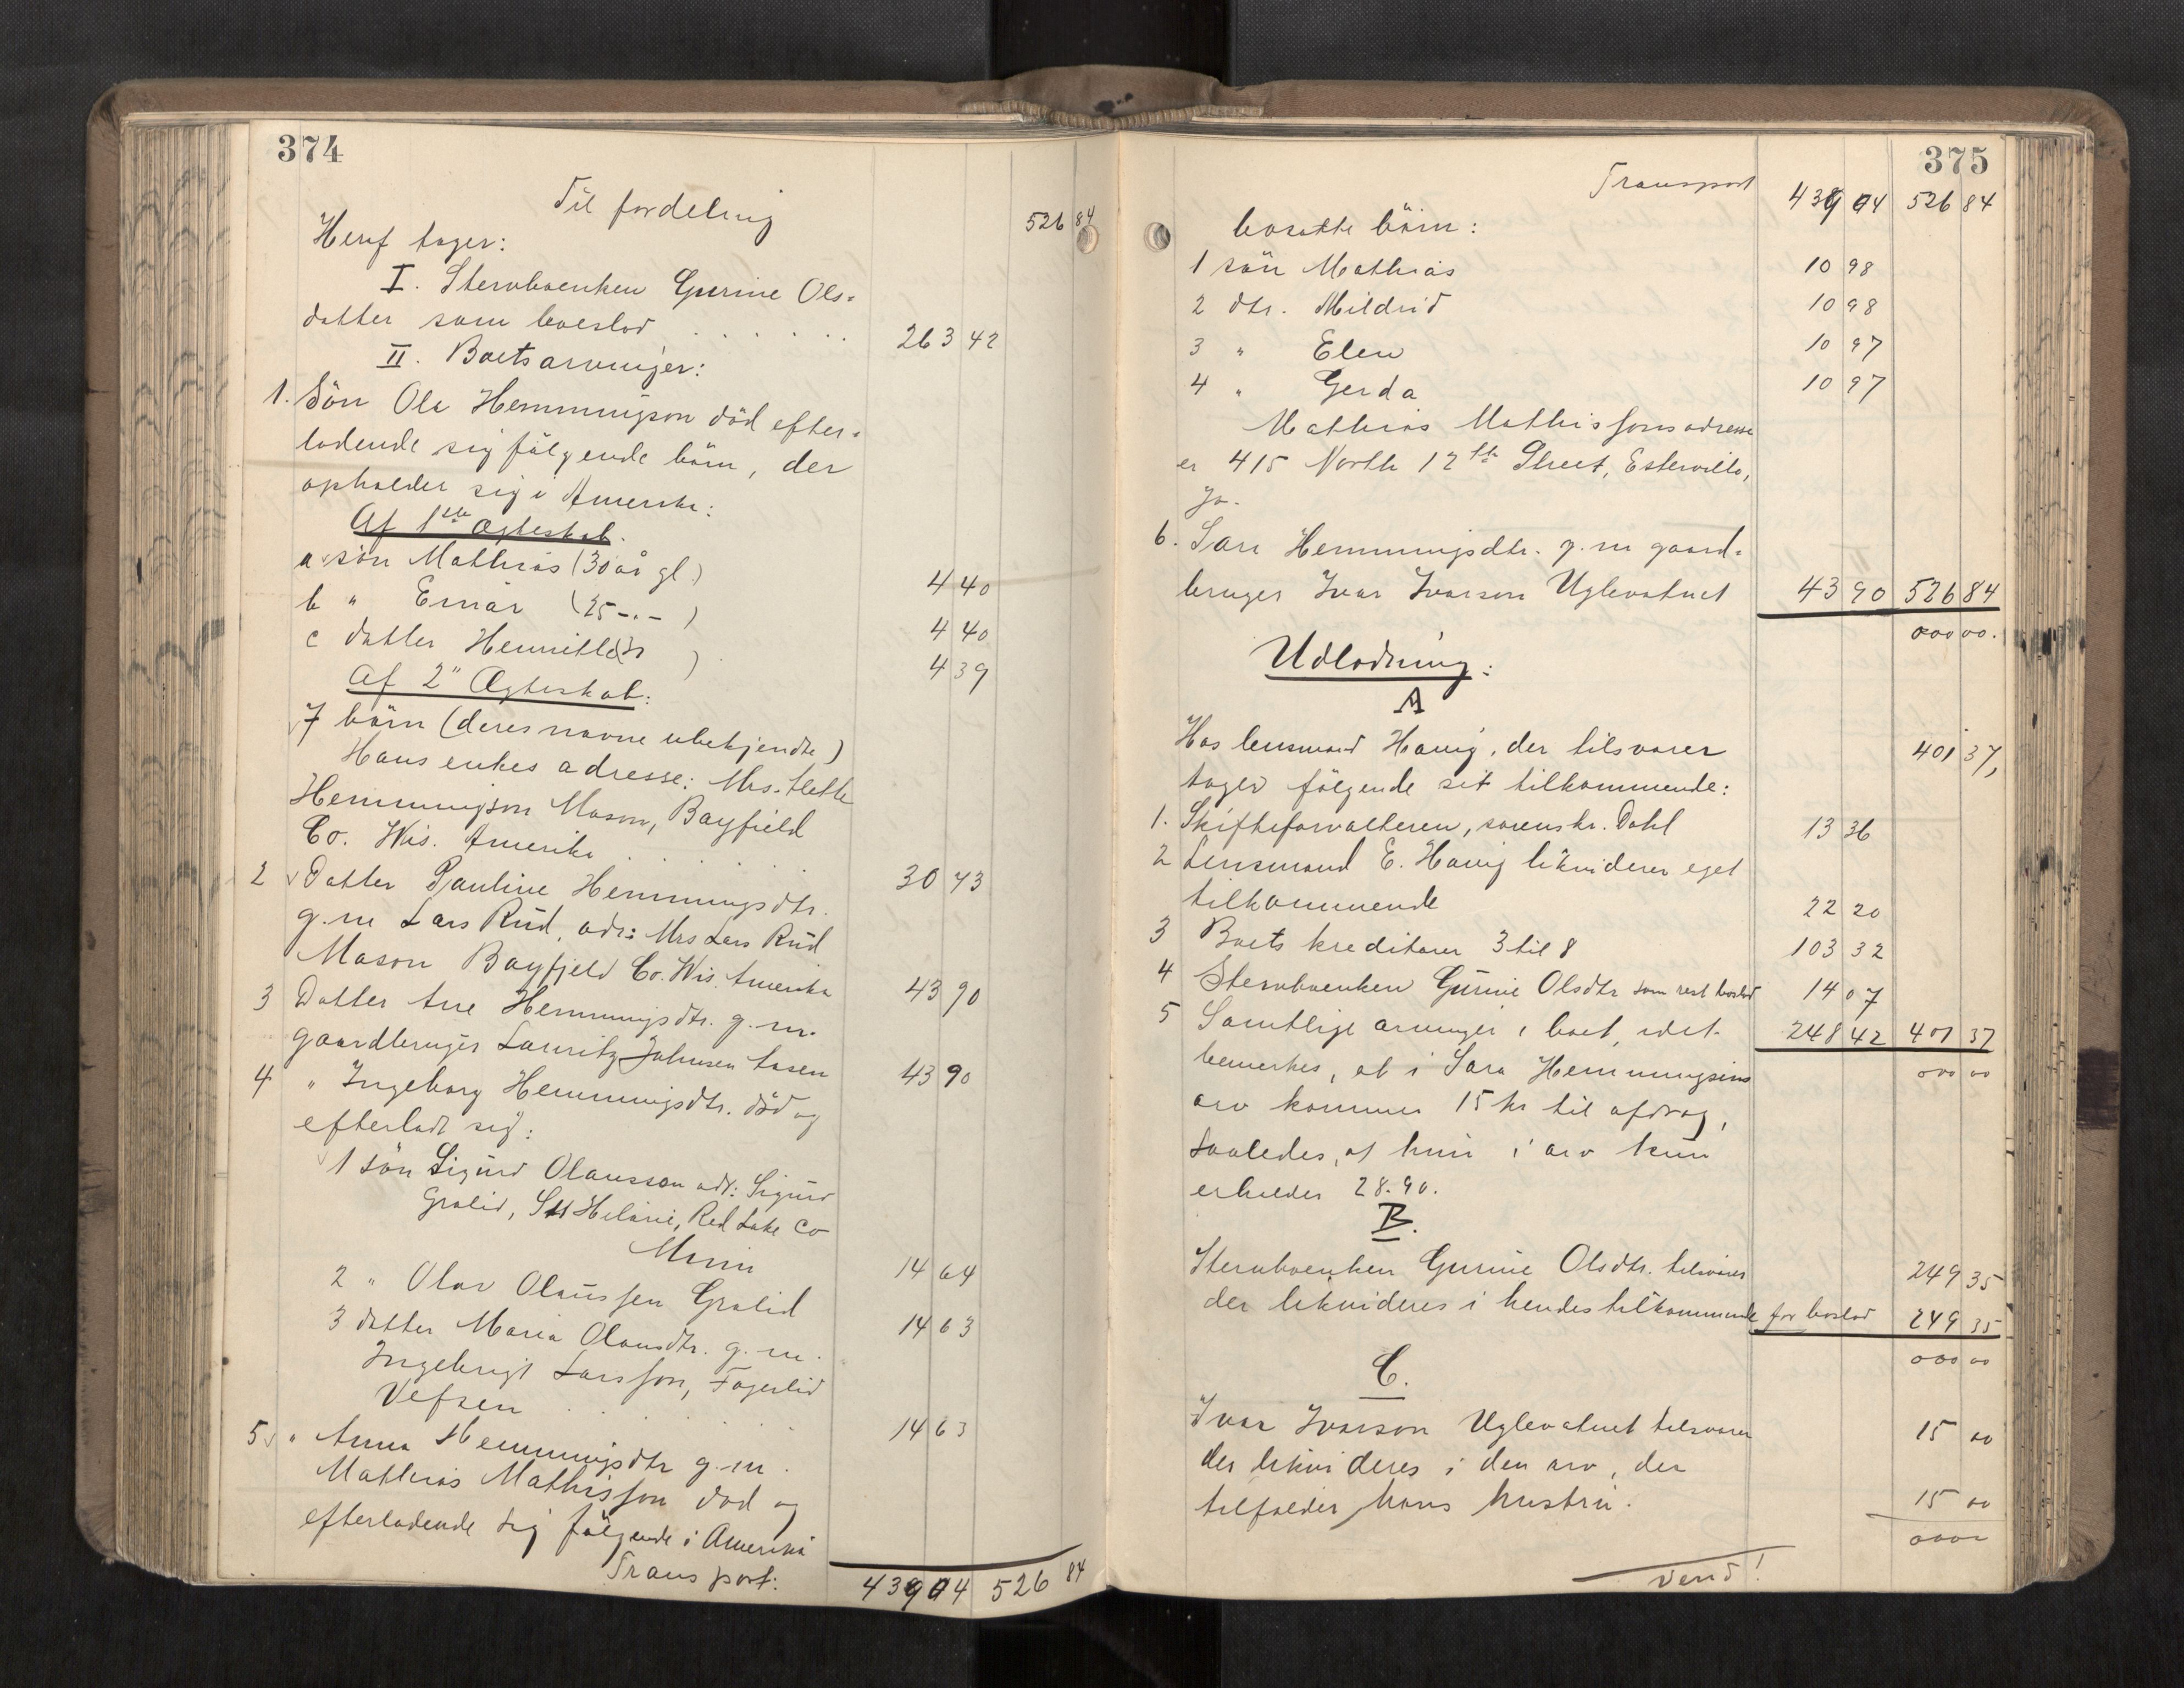 374
Til fordeling 526 84
Heraf tager:
I. Stervboenken Gurine Ols-
datter som boeslod . . . . . . . 263 42
II. Boets arvinger:
1. Sön Ole Hemmingson död efter-
ladende sig fölgende börn, der
opholder sig i Amerika:
Af 1ste Ægteskab.
a sön Mathias (30 år gl.) 4 40
b " Einar (25 -"- ) 4 40
c datter Henritte ( ) 4 39
Af 2" Ægteskab:
7 börn (deres navne ubekjendte)
Hans enkes adresse: Mrs. Mette
Hemmingson Mason, Bayfield
Co. Wis. Amerika . . . . . 30 73
2 Datter Pauline Hemmingsdtr.
g. m Lars Rud, adr: Mrs Lars Rud
Mason Bayfjeld Co. Wis. Amerika 43 90
3 Datter Ane Hemmingsdtr. g. m.
gaardbruger Lauritz Johnsen Aasen 43 90
4 " Ingeborg Hemmingsdtr. död og
efterladt sig:
1 sön Sigurd Olausson adr: Sigurd
Gralid, St Hilarie, Red Lake Co
Minn 14 64
2 " Olav Olaussen Gralid 14 63
3 datter Maria Olausdtr. g. m.
Ingebrigt Larsson, Fagerlid
Vefsen . . . . . . 14 63
5 " Anna Hemmingsdtr g. m.
Mathias Mathisson död og
efterladende sig fölgende i Amerika
Transport: 439 04 526 84
375
Transport 439 04 526 84
bosatte börn:
1 sön Mathias 10 98
2 dtr. Mildrid 10 98
3 " Elen 10 97
4 " Gerda 10 97
Mathias Mathissons adresse
er 415 North 12th Street, Estervills,
Ja.
6. Sara Hemmingsdtr. g. m gaard-
bruger Ivar Ivarson Uglevatnet 43 90 526 84
000 00.
Udlodning:
A
Hos lensmand Haug, der tilsvarer 401 37,
tager fölgende sit tilkommende:
1. Skifteforvalteren, sorenskr. Dahl 13 36
2 Lensmand E. Haug likviderer eget
tilkommende 22 20
3 Boets kreditorer 3 til 8 103 32
4 Stervboenken Gurine Olsdtr som rest boslod 14 07
5 Samtlige arvinger i boet, idet 248 42 401 37
bemerkes, at i Sara Hemmingsens 000 00
arv kommer 15 kr til afdrag,
saaledes, at hun i arv kun
erholder 28.90.
B.
Stervboenken Gurine Olsdtr. tilsvarer 249 35
der likvideres i hendes tilkommende for boslod 249 35
000 00
C.
Ivar Ivarson Uglevatnet tilsvarer 15 00
der likvideres i den arv, der
tilfalder hans hustru. 15 00
0000
Vend!